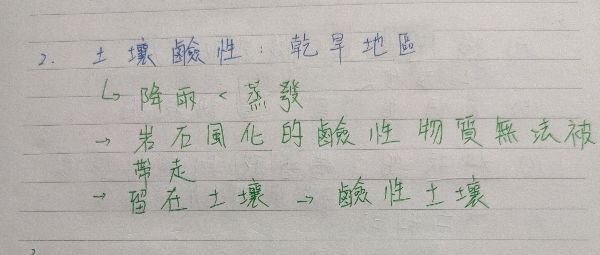 2. 土壤鹼性：乾旱地區
↳ 降雨 < 蒸發
→ 岩石風化的鹼性物質無法被
帶走
→ 留在土壤 → 鹼性土壤